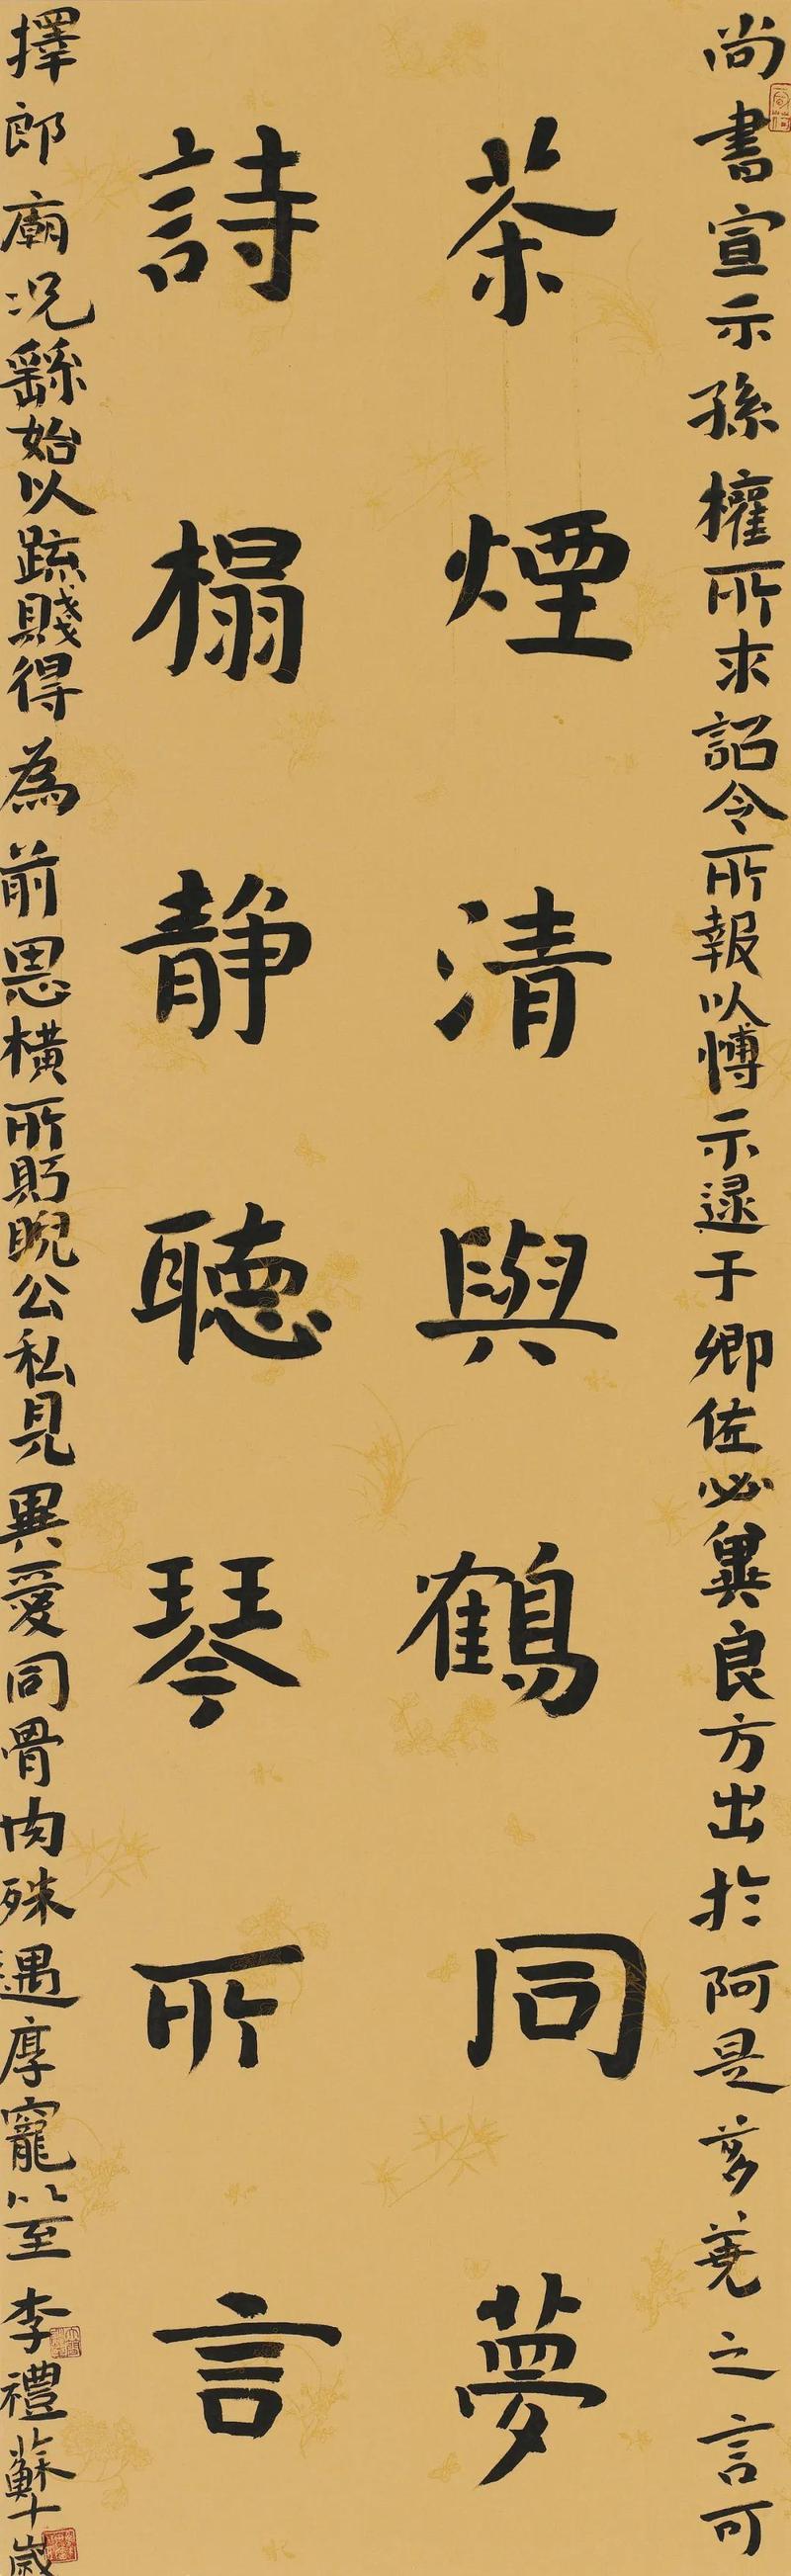 尚書宣示孫權所求詔令所報以博示逯于卿佐必冀良方出於阿是芻蕘之言可
茶煙清與鶴同夢
詩榻靜聽琴所言
擇郎廟況繇始以疏賤得為前恩橫所貺睨公私見異愛同骨肉殊遇厚寵以至李禮蘇十歲